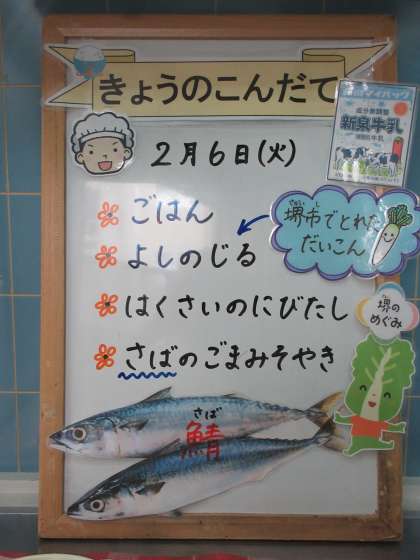 きょうのこんだて
成分無調整
新泉牛乳
2月6日(火)
ごはん
よしのじる
はくさいのにびたし
さばのごまみそやき
堺市でとれた
だいこん
堺の
めぐみ
さば
鯖